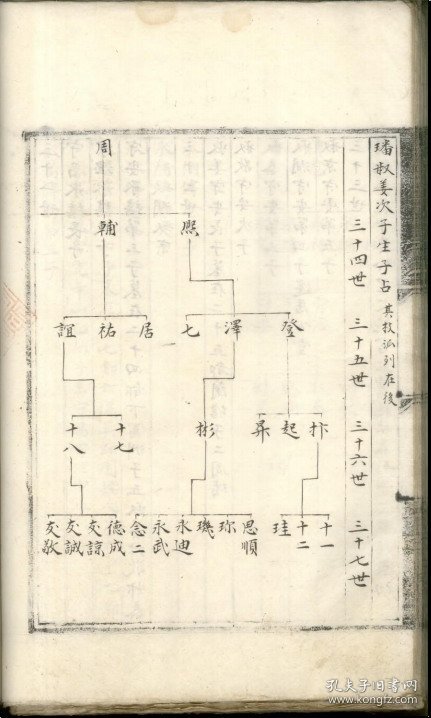 璠叔姜次子生子占其枝派列在後
三十四世
三十五世
三十六世
三十七世
熈
輔
周
登
澤
七
居
祐
誼
抃
起
昇
彬
十七
十八
十一
十二
珪
思順
珎
璣
永迪
永武
念二
德成
友諒
友誠
友敬
孔夫子旧书网
www.kongfz.com